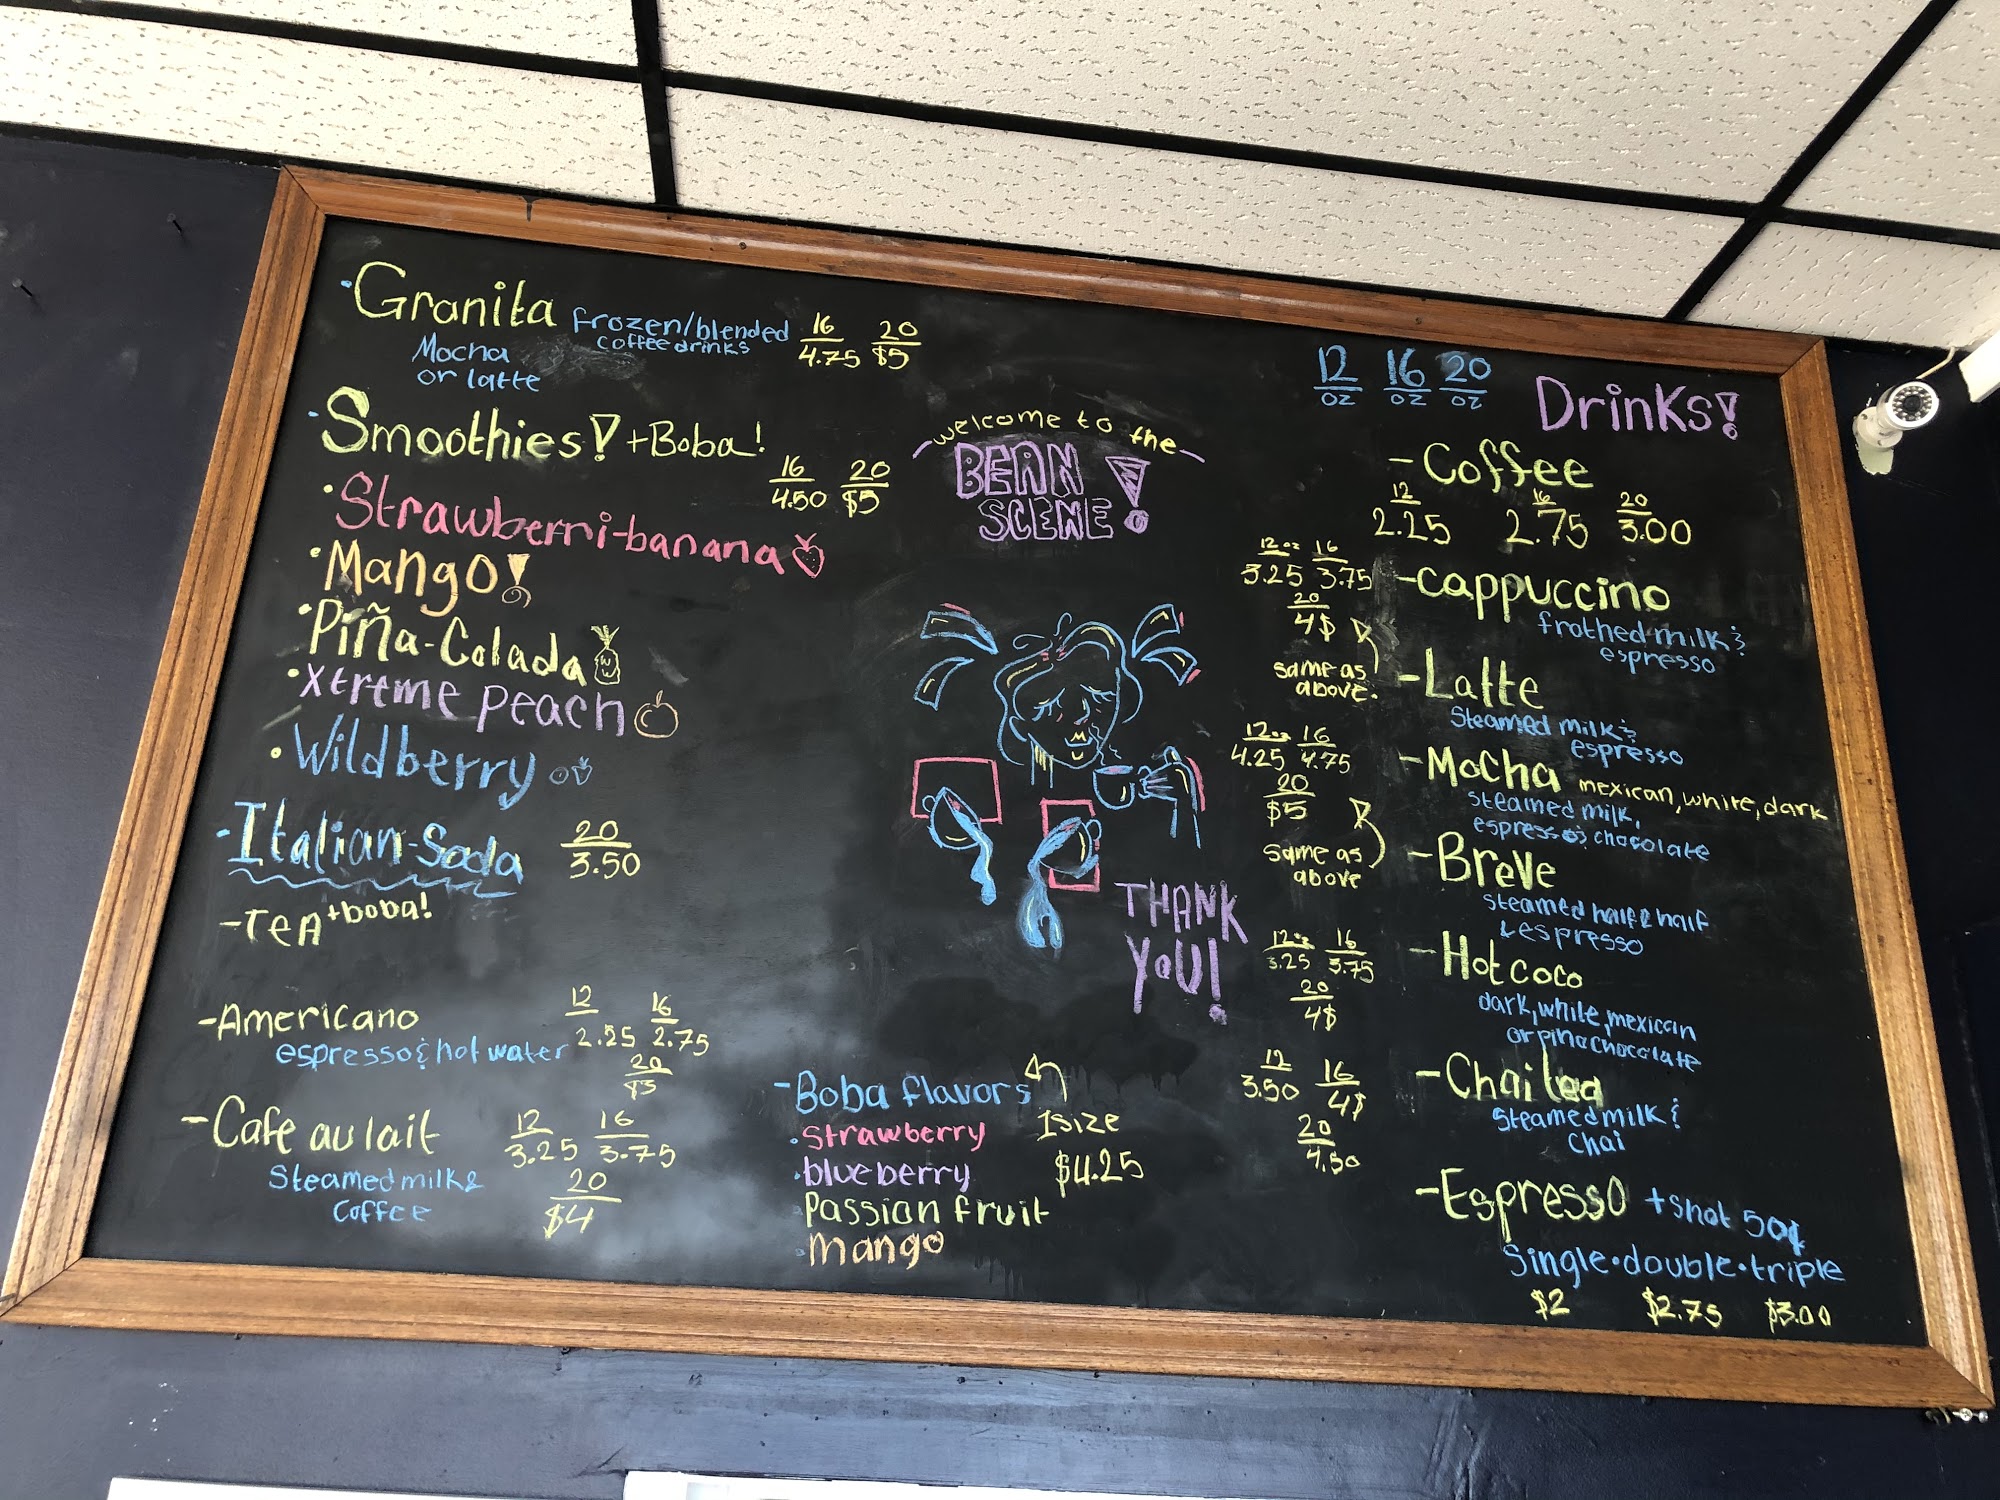 ·Granita frozen/blended 16 20
coffee drinks 4.75 $5
Mocha
or latte
·Smoothies! +Boba!
16 20
4.50 $5
·Strawberri-banana
·Mango!
·Piña-Colada
·Xtreme peach
·Wildberry
·Italian-Soda 20
3.50
-Tea +boba!
-Americano 12 16
espresso & hot water 2.25 2.75
20
$3
-Cafe au lait 12 16
3.25 3.75
Steamed milk & 20
coffee $4
welcome to the
BEAN
SCENE!
THANK
YOU!
-Boba flavors
·strawberry 1size
·blueberry $4.25
·Passion fruit
·mango
12 16 20
oz oz oz
Drinks!
-Coffee
12 16 20
2.25 2.75 3.00
12oz 16
3.25 3.75
20
4$
-cappuccino
frothed milk &
espresso
same as
above.
-Latte
Steamed milk &
espresso
12oz 16
4.25 4.75
20
$5
-Mocha mexican, white, dark
steamed milk,
espresso & chocolate
same as
above
-Breve
steamed half & half
& espresso
12oz 16
3.25 3.75
20
4$
-Hot coco
dark, white, mexican
or pina chocolate
12 16
3.50 4$
20
4.50
-Chai tea
Steamed milk &
chai
-Espresso +shot 50¢
Single·double·triple
$2 $2.75 $3.00